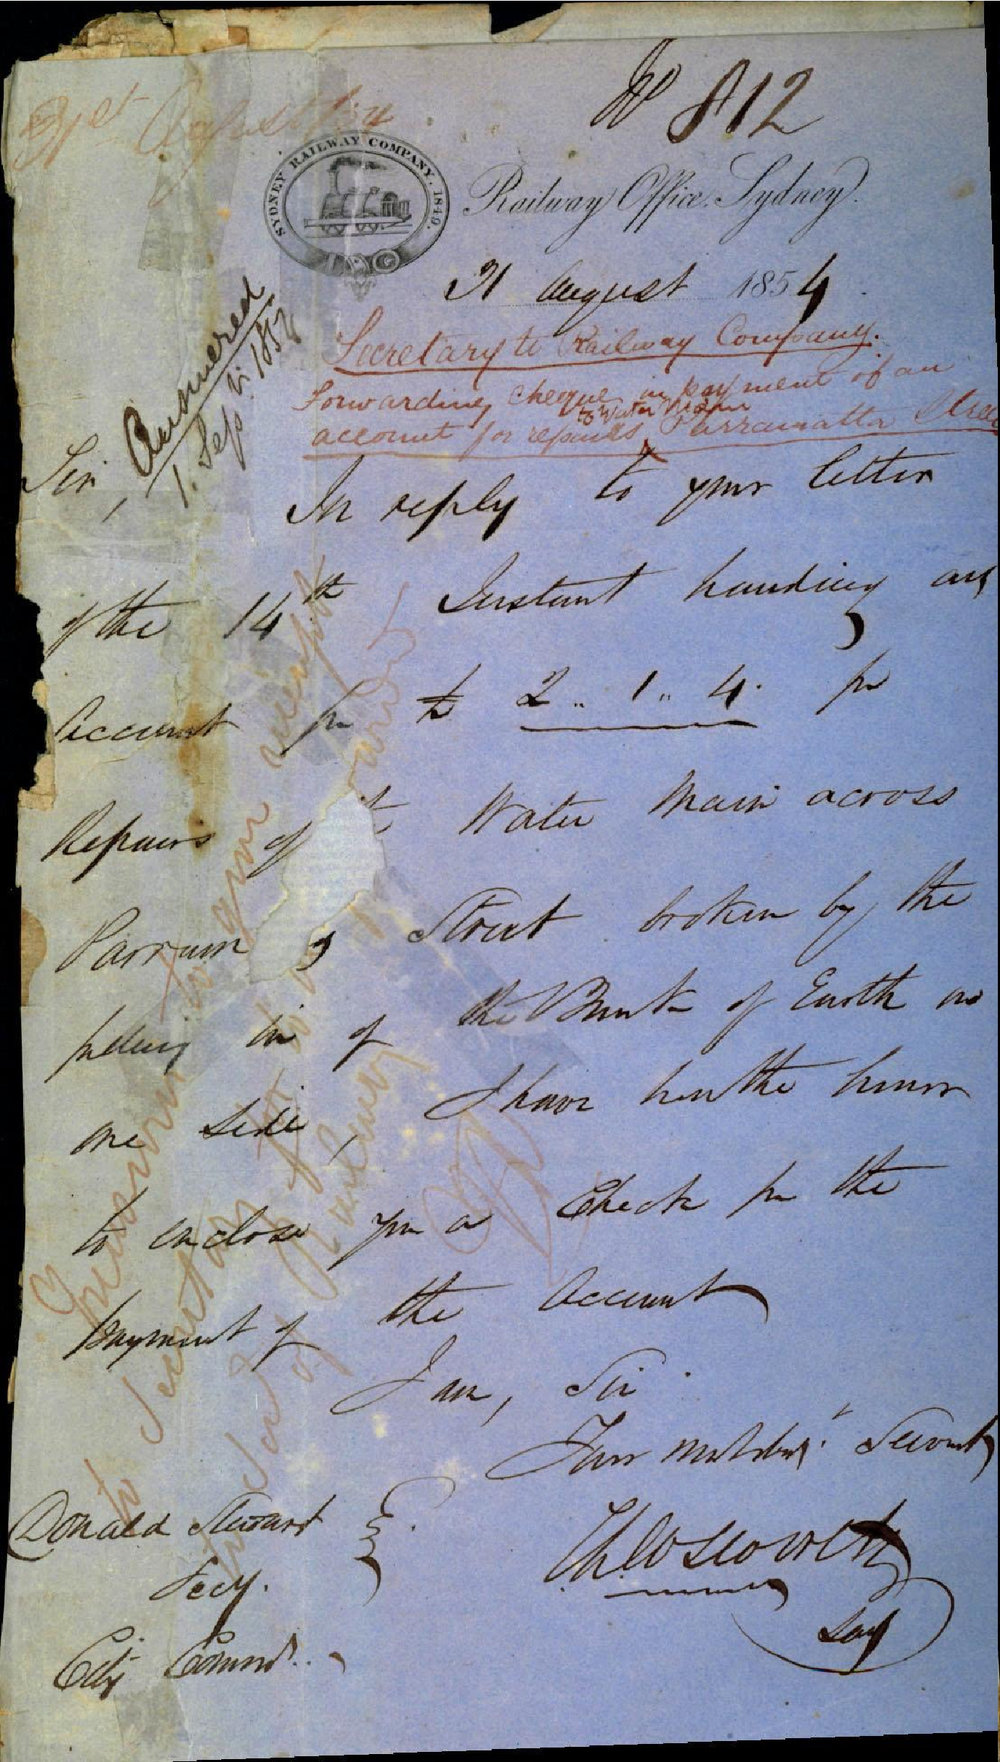 31st August 1854
No 812
SYDNEY RAILWAY COMPANY. 1849.
Railway Office. Sydney.
31 August 1854
Secretary to Railway Company.
Forwarding cheque in payment of an
account for repairs to Water Main Parramatta Street
Answered
1. Sep 1854
Sir,
In reply to your letter
of the 14th Instant handing an
Account for £ 2.. 1.. 4. for
Repairs of Water Main across
Parram Street broken by the
of the Bank of Earth on
one side, I have the honor
to enclose you a Check for the
Payment of the Account
I am, Sir
Your Servant
Donald Stewart
Secy.
City
Secy